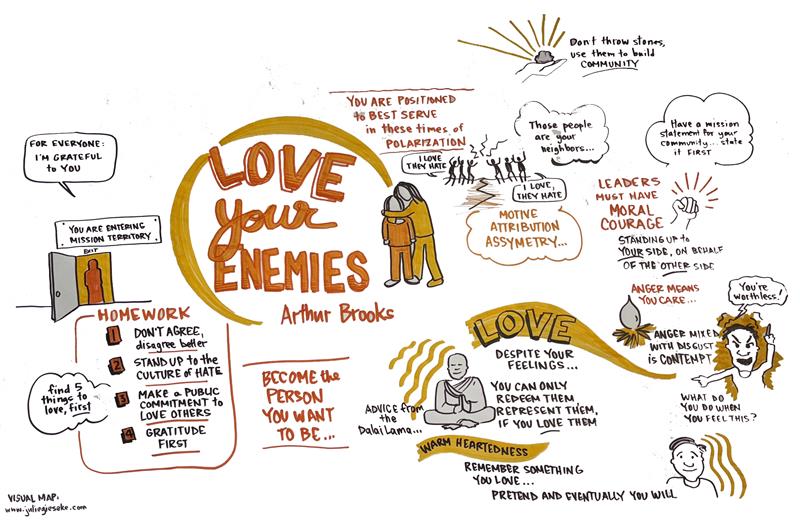 Don't throw stones,
use them to build
COMMUNITY
YOU ARE POSITIONED
to BEST SERVE
in these times of
POLARIZATION
Those people
are your
neighbors...
Have a mission
statement for your
community... state
it FIRST
FOR EVERYONE:
I'M GRATEFUL
to YOU
I LOVE
THEY HATE
I LOVE,
THEY HATE
MOTIVE
ATTRIBUTION
ASSYMETRY...
LEADERS
MUST HAVE
MORAL
COURAGE
STANDING UP to
YOUR SIDE, ON BEHALF
OF THE OTHER SIDE
YOU ARE ENTERING
MISSION TERRITORY
EXIT
LOVE
your
ENEMIES
Arthur Brooks
ANGER MEANS
YOU CARE...
You're
worthless!
ANGER MIXED
WITH DISGUST
is CONTEMPT
WHAT DO
YOU DO WHEN
YOU FEEL THIS?
HOMEWORK
1 DON'T AGREE,
disagree better
2 STAND UP to the
CULTURE OF HATE
3 MAKE A PUBLIC
COMMITMENT to
LOVE OTHERS
4 GRATITUDE
FIRST
find 5
things to
love, first
BECOME the
PERSON
YOU WANT
TO BE...
LOVE
DESPITE YOUR
FEELINGS...
YOU CAN ONLY
REDEEM THEM
REPRESENT THEM,
IF YOU LOVE THEM
ADVICE from
the
Dalai Lama...
WARM HEARTEDNESS
REMEMBER SOMETHING
YOU LOVE...
PRETEND AND EVENTUALLY YOU WILL
VISUAL MAP: